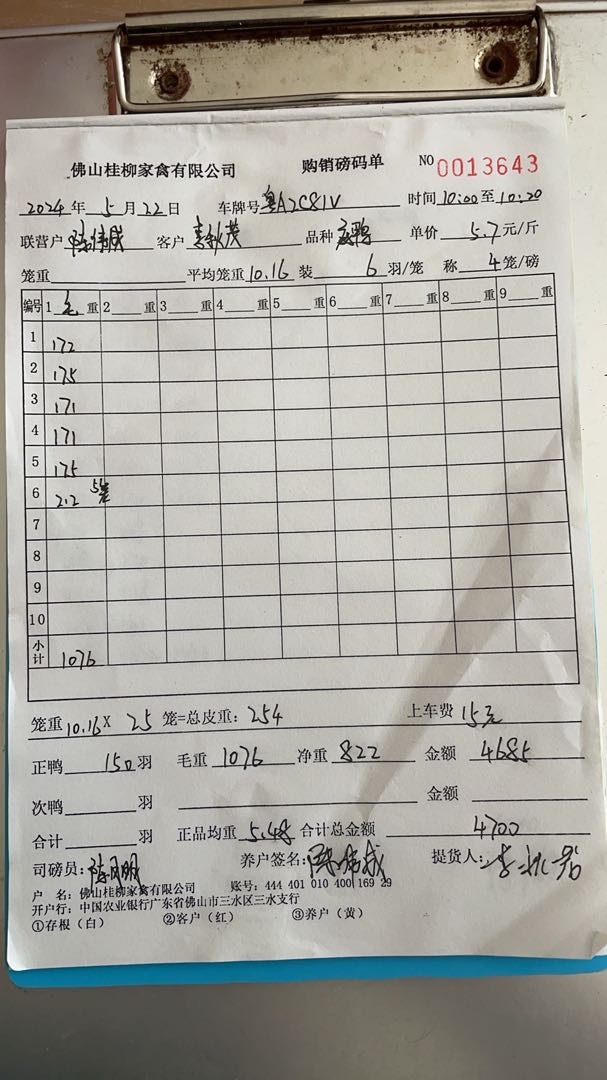 佛山桂柳家禽有限公司 购销磅码单 NO 0013643
2024 年 5 月 22 日 车牌号 粤A2C81V 时间 10:00 至 10:20
联营户 陈伟成 客户 李秋茂 品种 鸭 单价 5.7 元/斤
笼重 平均笼重 10.16 装 6 羽/笼 称 4 笼/磅
编号 1 毛 重 2 重 3 重 4 重 5 重 6 重 7 重 8 重 9 重
1 172
2 175
3 171
4 171
5 175
6 212 5笼
7
8
9
10
小计 1076
笼重 10.16 X 25 笼=总皮重: 254 上车费 15元
正鸭 150 羽 毛重 1076 净重 822 金额 4685
次鸭 羽 金额
合计 羽 正品均重 5.48 合计总金额 4700
司磅员: 养户签名: 陈伟成 提货人:
户 名: 佛山桂柳家禽有限公司 账号: 444 401 010 400 169 29
开户行: 中国农业银行广东省佛山市三水区三水支行
①存根（白） ②客户（红） ③养户（黄）